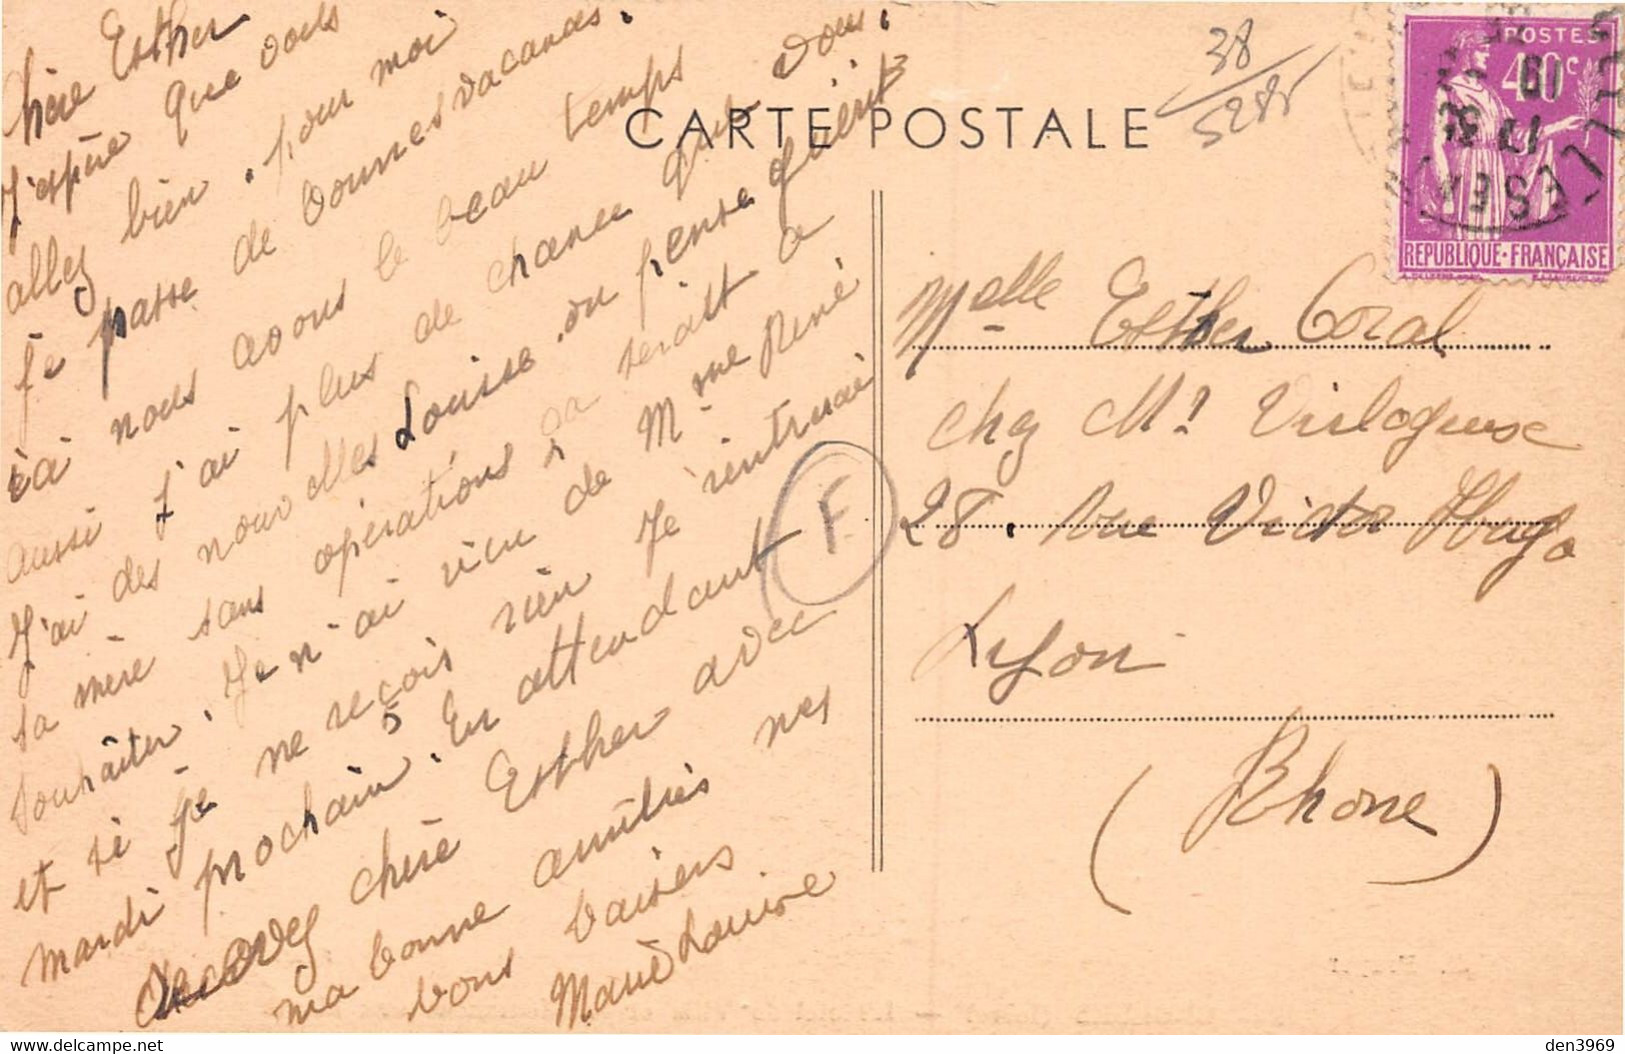 Chère Esther
J'espère que vous
allez bien. pour moi
je passe de bonnes vacances.
ici nous avons le beau temps
aussi j'ai plus de chance que vous.
J'ai des nouvelles Louise. on pense guérir
sa mère sans opérations ça serait à
souhaiter. Je n'ai rien de Mme René
et si je ne reçois rien je rentrerai
mardi 5 prochain. En attendant
recevez chère Esther avec
ma bonne amitiés mes
bons baisers
Marie Louise
38
5285
CARTE POSTALE
F
POSTES
40c
REPUBLIQUE·FRANÇAISE
19
17
Melle Esther Coral
chez Mr
28. rue Victor Hugo
Lyon
(Rhone)
den3969